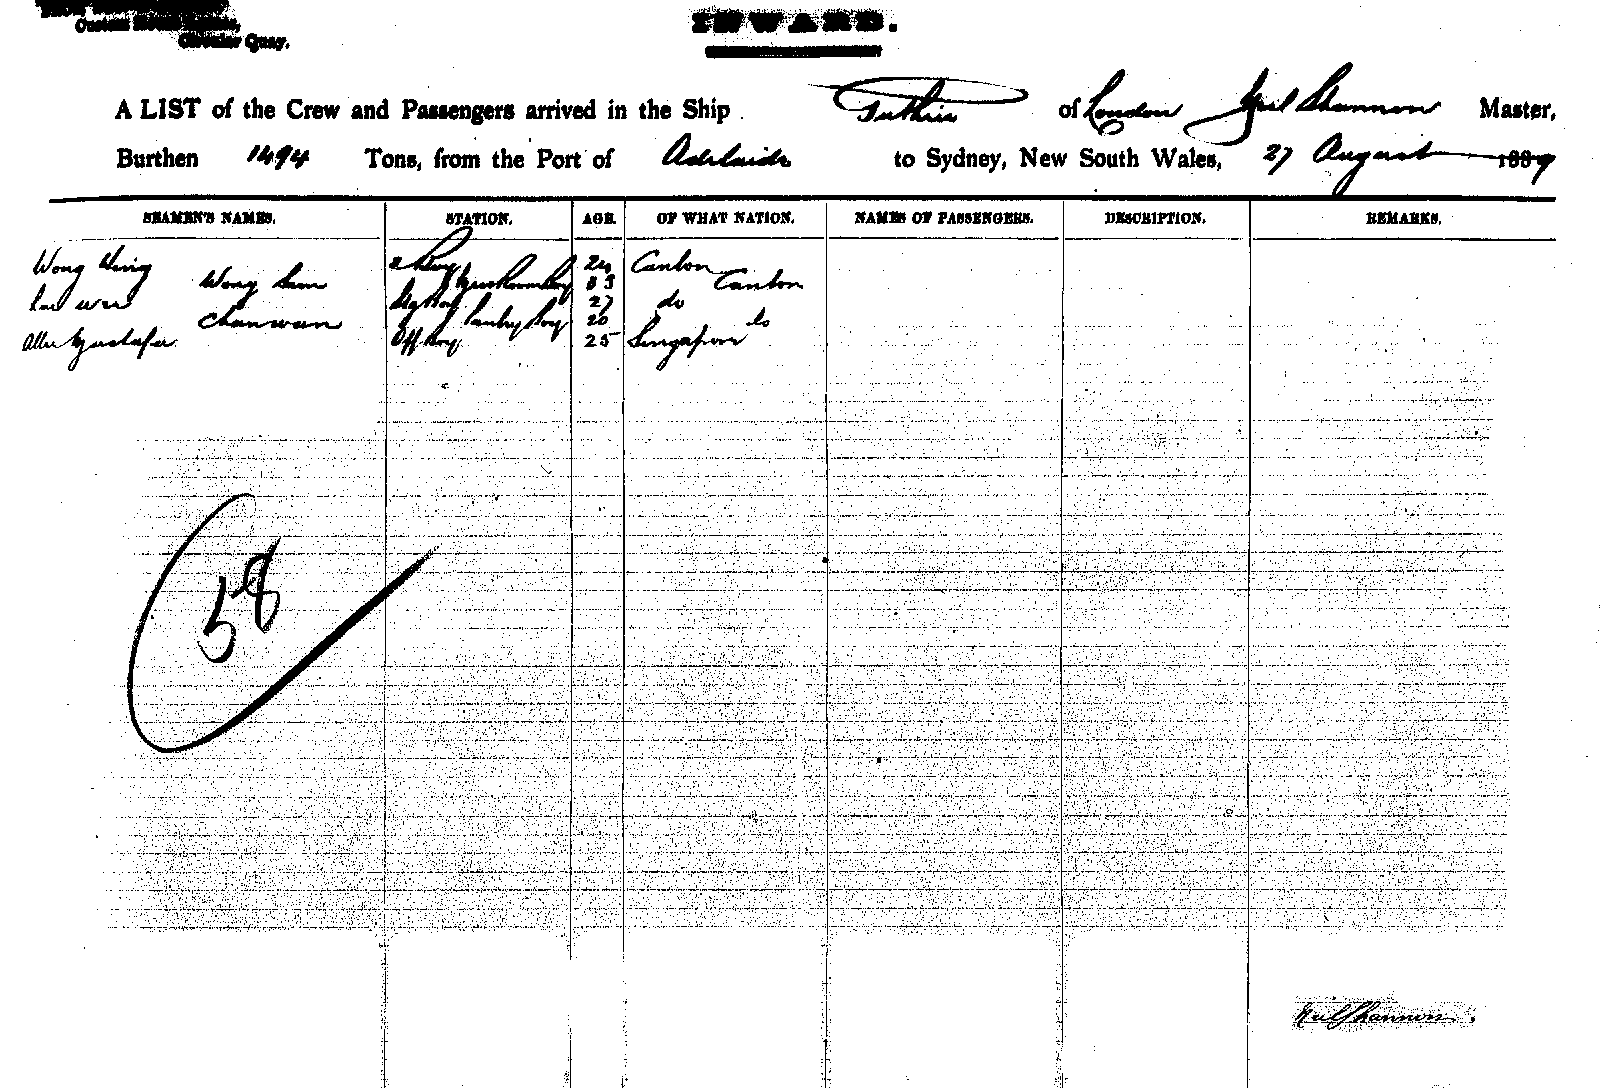 Custom House
Circular Quay.
INWARD.
A LIST of the Crew and Passengers arrived in the Ship Guthrie of London Neil Shannon Master,
Burthen 1494 Tons, from the Port of Adelaide to Sydney, New South Wales, 27 August 1889
SEAMEN'S NAMES. STATION. AGE. OF WHAT NATION. NAMES OF PASSENGERS. DESCRIPTION. REMARKS.
Wong 24 Canton
Wong Sam Canton
27 do
Chan wan Pantry Boy 20 do
25 Singapore
58
Neil Shannon.